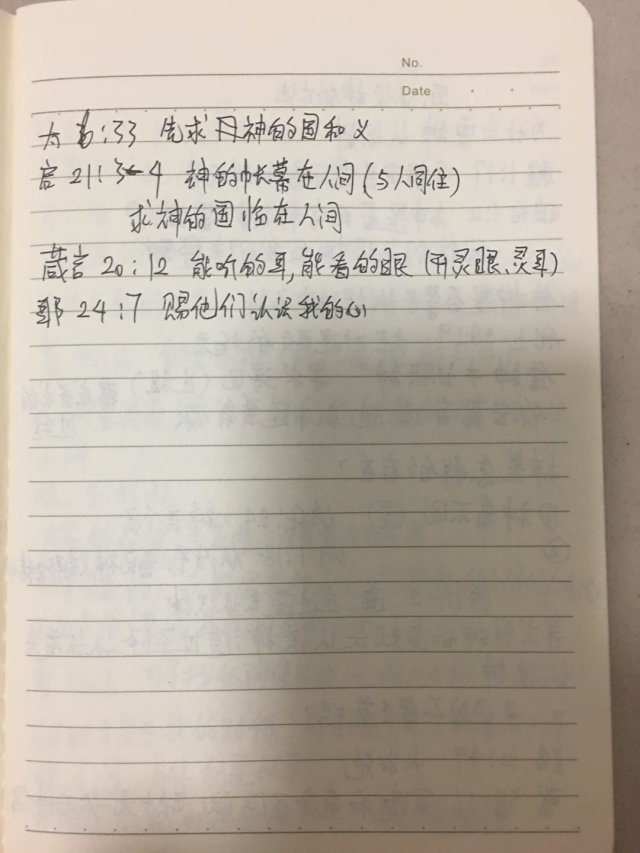 No.
Date
太6:33 先求 神的国和义
启21:3-4 神的帐幕在人间(与人同住)
求神的国临在人间
箴言 20:12 能听的耳,能看的眼 (开灵眼、灵耳)
耶 24:7 赐他们认识我的心